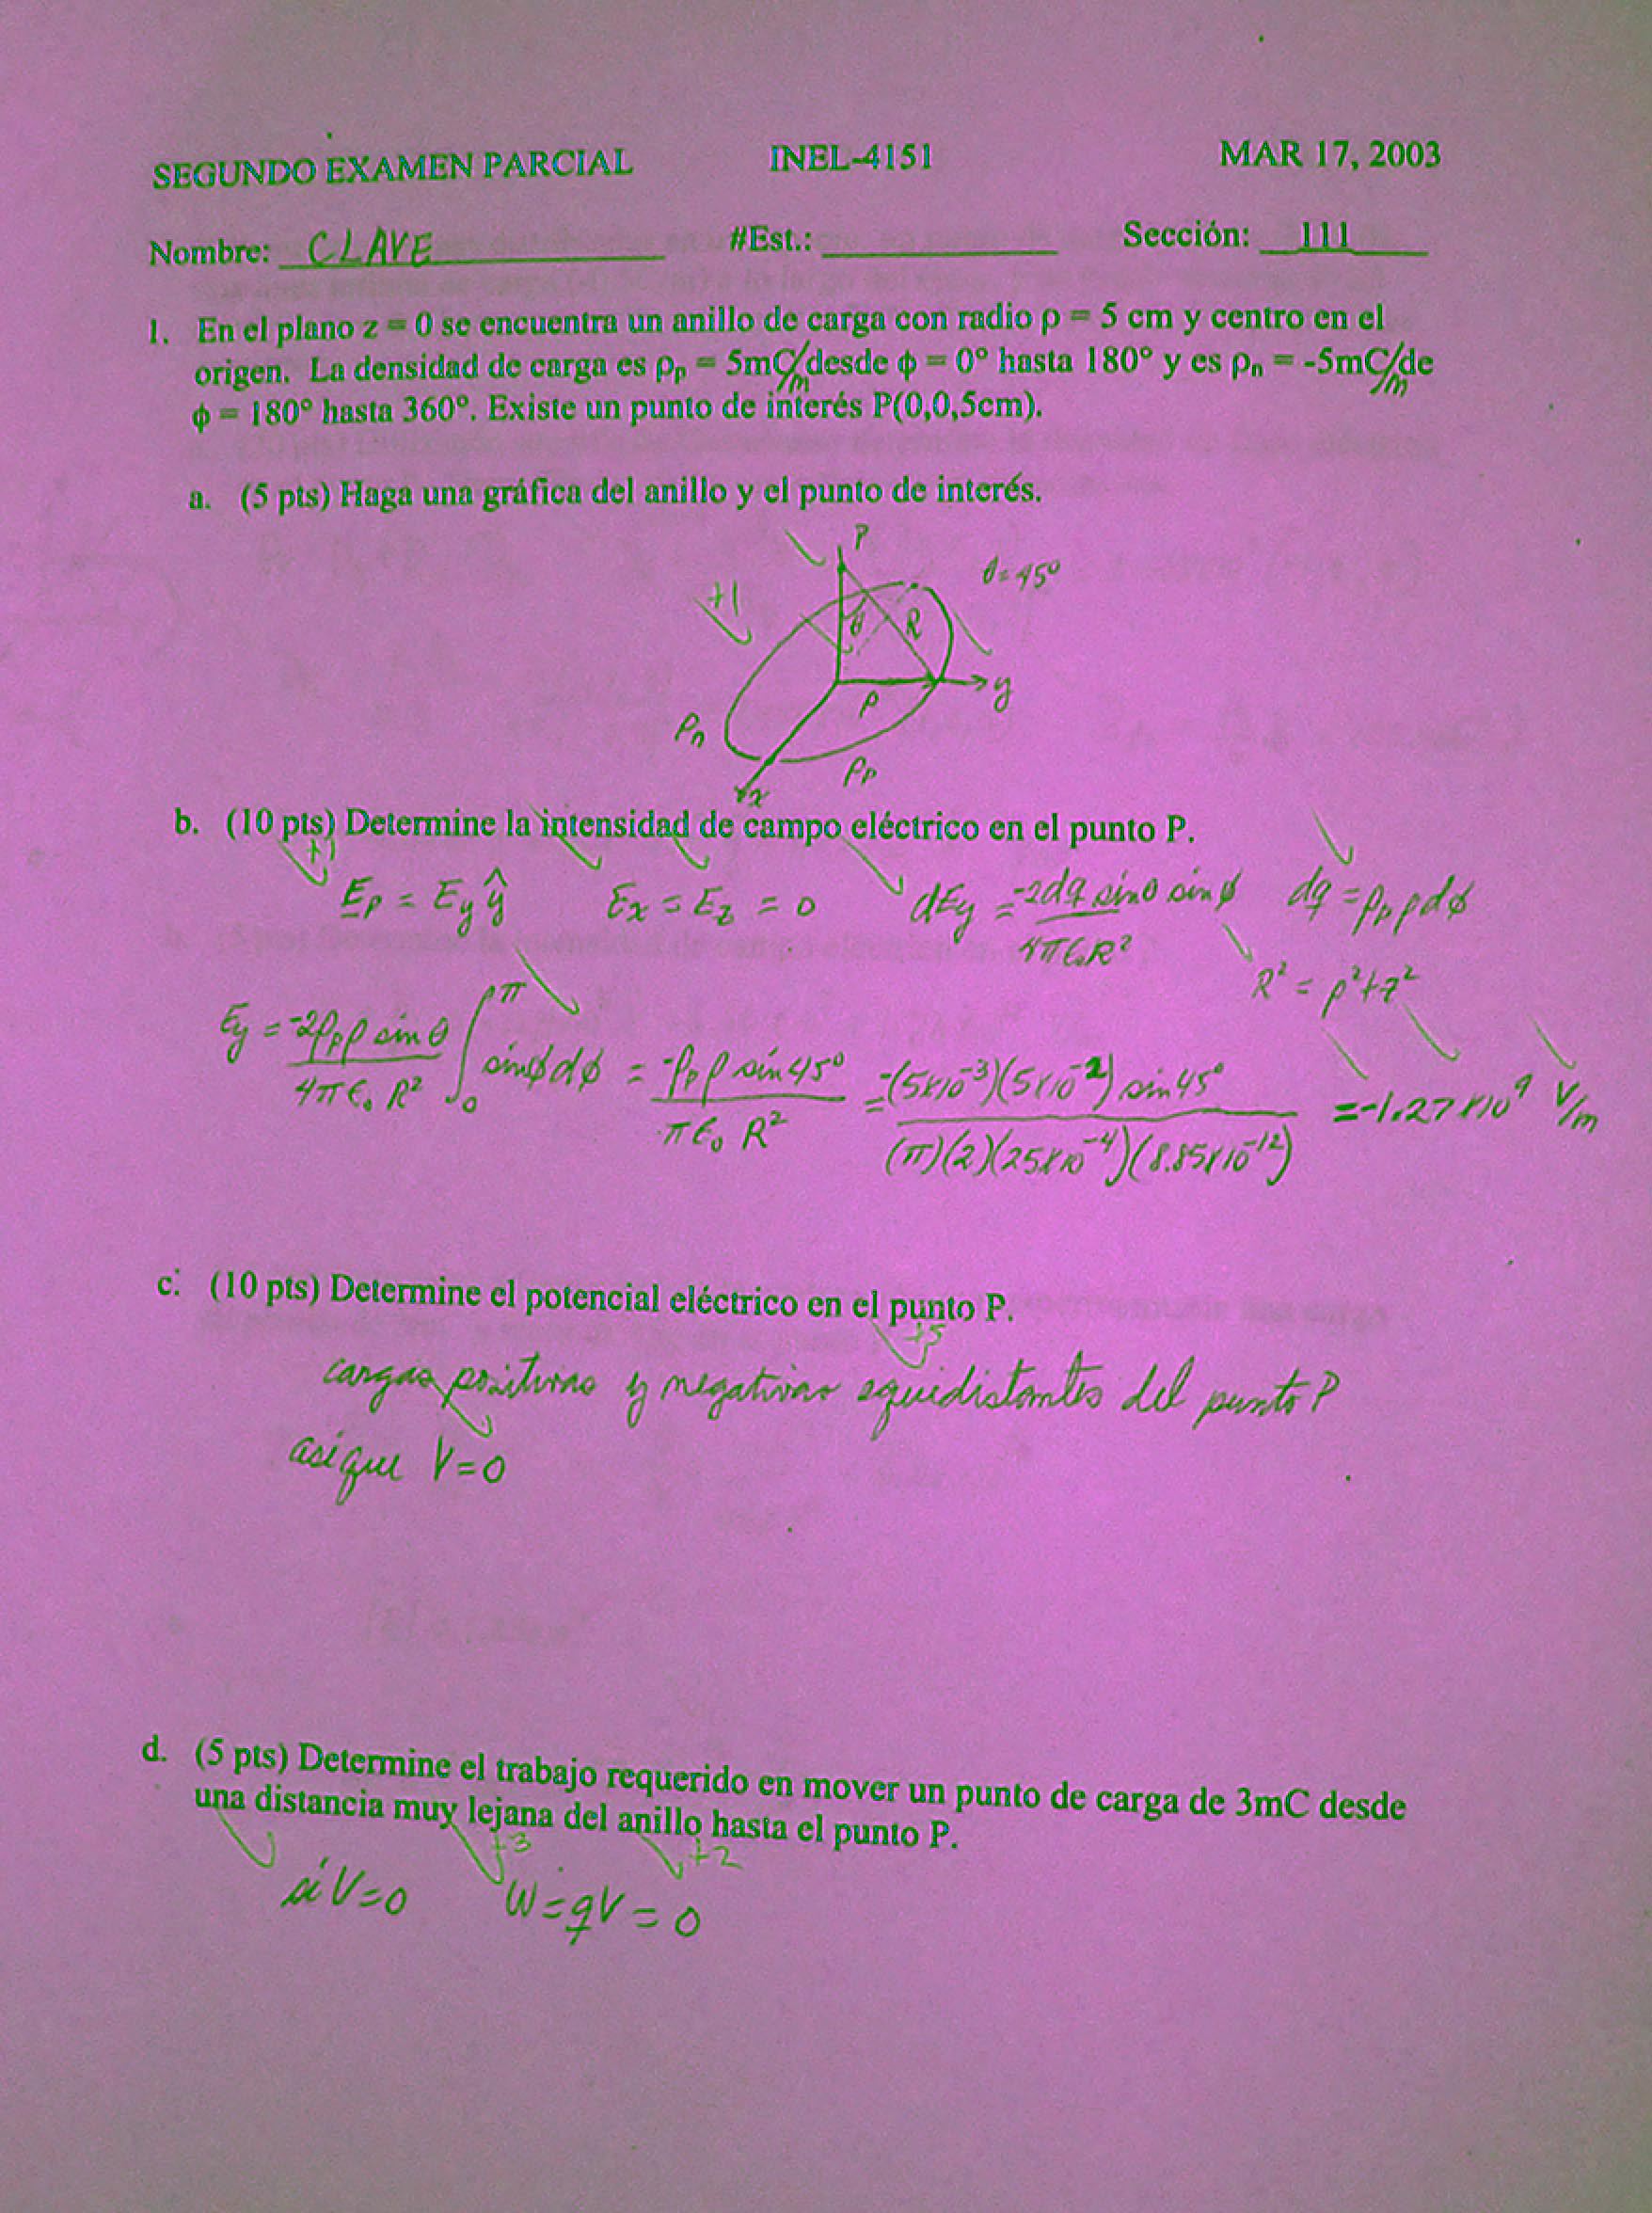 SEGUNDO EXAMEN PARCIAL INEL-4151 MAR 17, 2003
Nombre: CLAVE #Est.: Sección: 111
1. En el plano z = 0 se encuentra un anillo de carga con radio ρ = 5 cm y centro en el
origen. La densidad de carga es ρp = 5mC/m desde ϕ = 0° hasta 180° y es ρn = -5mC/m de
ϕ = 180° hasta 360°. Existe un punto de interés P(0,0,5cm).
a. (5 pts) Haga una gráfica del anillo y el punto de interés.
P
θ=45°
+1
θ R
y
ρ
ρn
ρp
x
b. (10 pts) Determine la intensidad de campo eléctrico en el punto P.
+1
Ep = Ey ŷ Ex = Ez = 0 dEy = -2dq sinθ sinϕ / 4πε₀R² dq = ρp ρdϕ
R² = ρ²+z²
Ey = -2ρpρ sinθ / 4πε₀R² ∫₀^π sinϕdϕ = -ρp ρ sin45° / πε₀R² = -(5x10⁻³)(5x10⁻²) sin45° / (π)(2)(25x10⁻⁴)(8.85x10⁻¹²) = -1.27x10⁹ V/m
c. (10 pts) Determine el potencial eléctrico en el punto P.
+5
cargas positivas y negativas equidistantes del punto P
asi que V=0
d. (5 pts) Determine el trabajo requerido en mover un punto de carga de 3mC desde
una distancia muy lejana del anillo hasta el punto P.
+3 +2
si V=0 W=qV=0